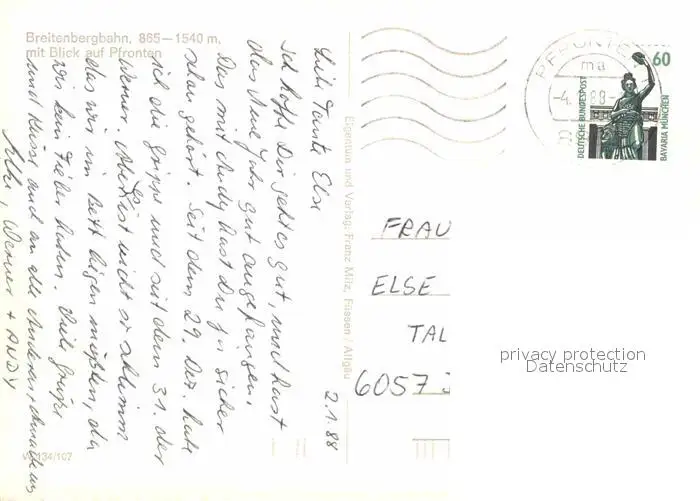 Breitenbergbahn, 865—1540 m,
mit Blick auf Pfronten
2.1.88
Liebe Tante Else
ich hoffe Dir geht es gut, und hast
das Neue Jahr gut angefangen.
Das mit Andy hast Du ja sicher
schon gehört. Seit dem 29. Dez. habe
ich die Grippe und seit dem 31. der
Werner. Aber es ist nicht so schlimm
das wir im Bett liegen müßten, da
wir kein Fieber haben. Viele Grüße
und Küsse auch an alle Anderen
Werner + ANDY
W 134/107
Eigentum und Verlag: Franz Milz, Füssen / Allgäu
PFRONTE
ma
-4. 88-
60
DEUTSCHE BUNDESPOST
BAVARIA MÜNCHEN
FRAU
ELSE
TAL
6057
privacy protection
Datenschutz